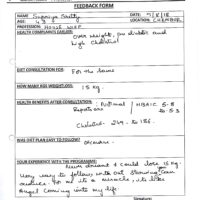 FEEDBACK FORM
NAME: Supriya Shetty
DATE: 7/8/18
AGE: 43
LOCATION: CHEMBUR
PROFESSION: HOUSE WIFE
HEALTH COMPLAINTS EARLIER:
Over weight, pre diabetic and
high cholesterol
DIET CONSULTATION FOR:
For the same
HOW MANY KGS WEIGHT LOSS:
15 kg
HEALTH BENEFITS AFTER CONSULTATION:
HBA1C 5.8
Reports are
to 5.3
Cholesterol 249 to 186.
WAS DIET PLAN EASY TO FOLLOW?
YOUR EXPERIENCE WITH THE PROGRAMME:
Never dreamt I could lose 15 kg.
Very easy to follow without
For me its a miracle, its like
angel coming into my life.
Signature: